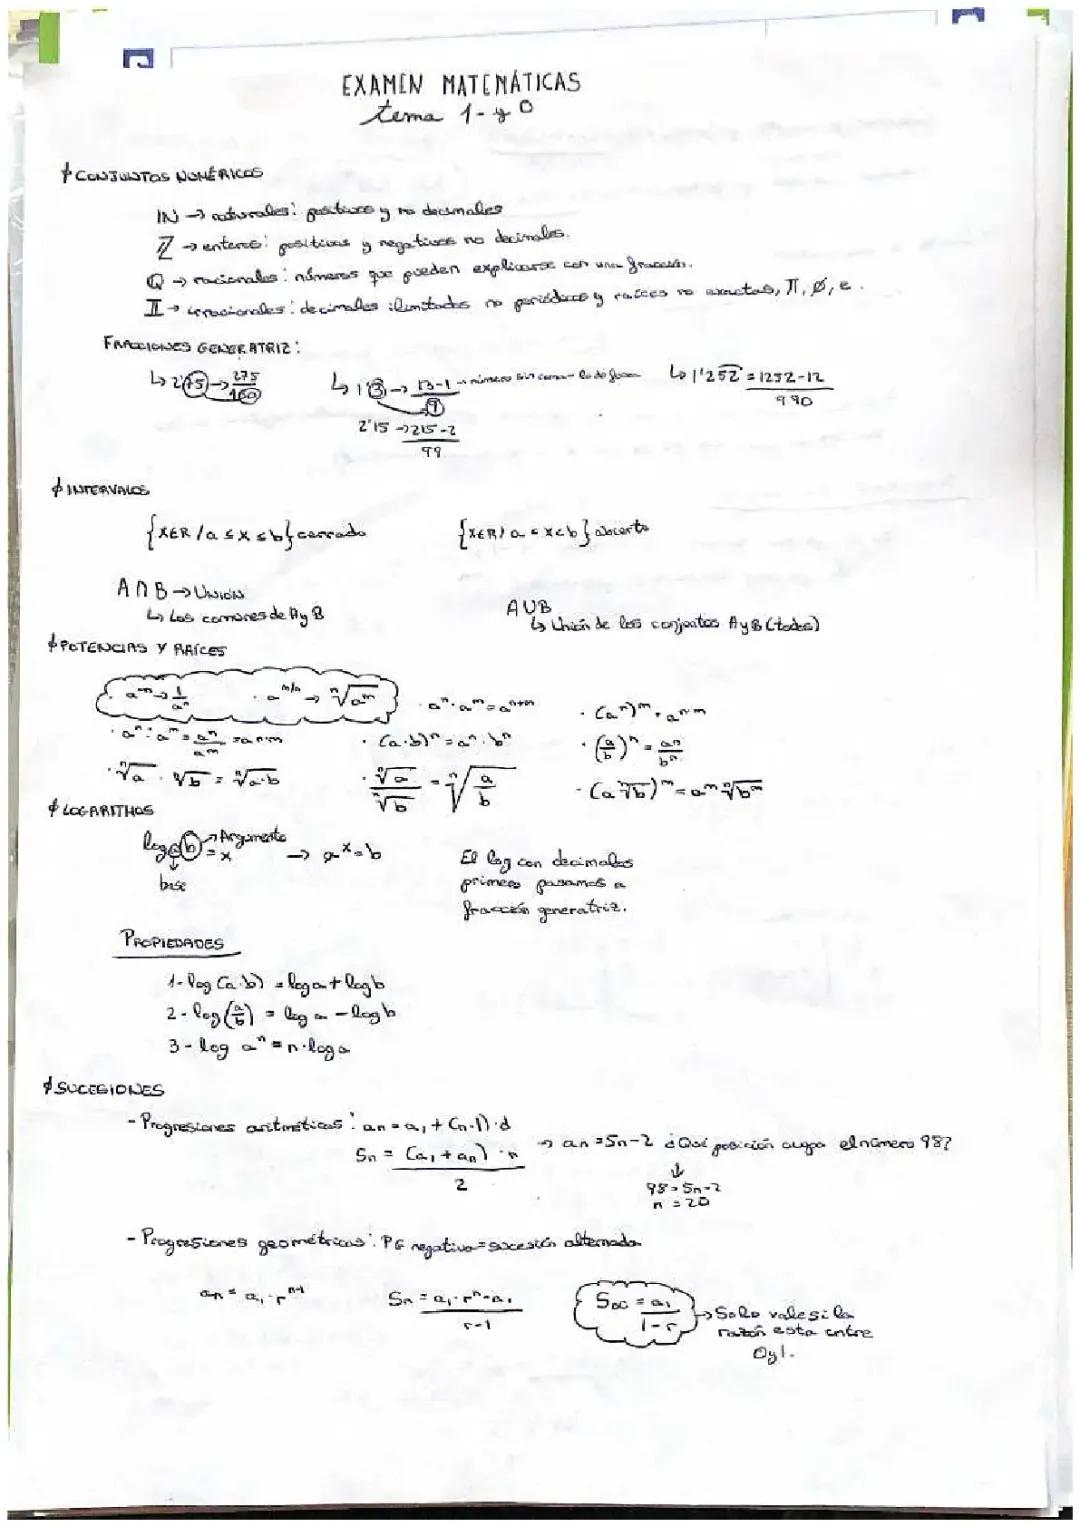 EXAMEN MATEMÁTICAS
tema 1- y 0
CONJUNTOS NUMÉRICOS
IN → naturales: positivos y no decimales
Z → enteros: positivos y negativos no decimales.
Q → racionales: números que pueden explicarse con una fracción.
II → irracionales: decimales ilimitados no periódicos y raíces no exactas, π, Ø, e.
FRACCIONES GENERATRIZ:
↳ 2'75 → 275/100
↳ 1'3 → 13-1/9 → número sin coma - lo de fuera
↳ 1'252 = 1252-12/990
2'15 → 215-2/99
INTERVALOS
{x∈R / a ≤ x ≤ b} cerrado
{x∈R / a < x < b} abierto
A ∩ B → UNION
↳ Los comunes de A y B
A U B
↳ Unión de los conjuntos A y B (todos)
POTENCIAS Y RAÍCES
a⁻ⁿ → 1/aⁿ · a^m/n → ⁿ√a^m
· aⁿ · a^m = a^n+m
· (aⁿ)^m = a^n·m
· aⁿ : a^m = aⁿ/a^m = a^n-m
· (a·b)ⁿ = aⁿ · bⁿ
· (a/b)ⁿ = aⁿ/bⁿ
· ⁿ√a · ⁿ√b = ⁿ√a·b
· ⁿ√a/ⁿ√b = ⁿ√a/b
· (a ⁿ√b)^m = a^m ⁿ√b^m
LOGARITMOS
log a b = x → a^x = b
Argumento
base
El log con decimales
primero pasamos a
fracción generatriz.
PROPIEDADES
1- log (a·b) = log a + log b
2- log (a/b) = log a - log b
3- log aⁿ = n·log a
SUCESIONES
- Progresiones aritméticas: an = a₁ + (n-1)·d
Sn = (a₁ + an) · n/2
→ an = 5n-2 ¿Qué posición ocupa el número 98?
↓
98 = 5n-2
n = 20
- Progresiones geométricas: PG negativa = sucesión alternada
an = a₁ · r^n-1
Sn = a₁ · rⁿ - a₁/r-1
S∞ = a₁/1-r
→ Solo vale si la
razón esta entre
0 y 1.